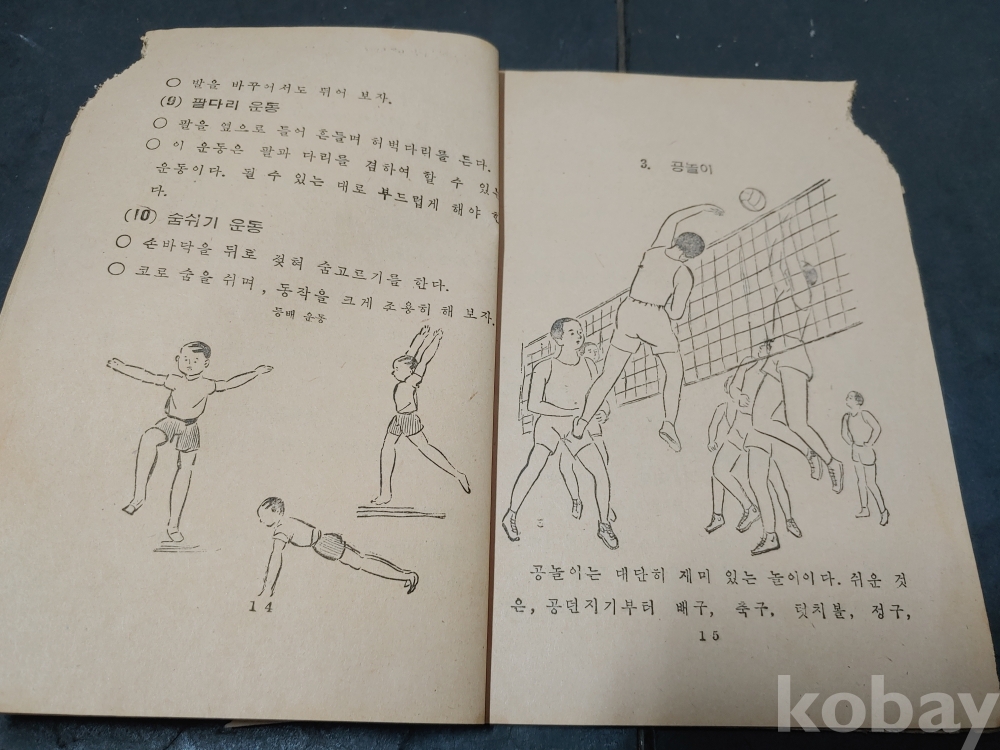 ○ 발을 바꾸어서도 뛰어 보자.
(9) 팔다리 운동
○ 팔을 옆으로 들어 흔들며 허벅다리를 든다.
○ 이 운동은 팔과 다리를 겸하여 할 수 있는
운동이다. 될 수 있는 대로 부드럽게 해야 한
다.
(10) 숨쉬기 운동
○ 손바닥을 뒤로 젖혀 숨고르기를 한다.
○ 코로 숨을 쉬며, 동작을 크게 조용히 해 보자.
등배 운동
14
3. 공놀이
공놀이는 대단히 재미 있는 놀이이다. 쉬운 것
은, 공던지기부터 배구, 축구, 텃치볼, 정구,
15
kobay